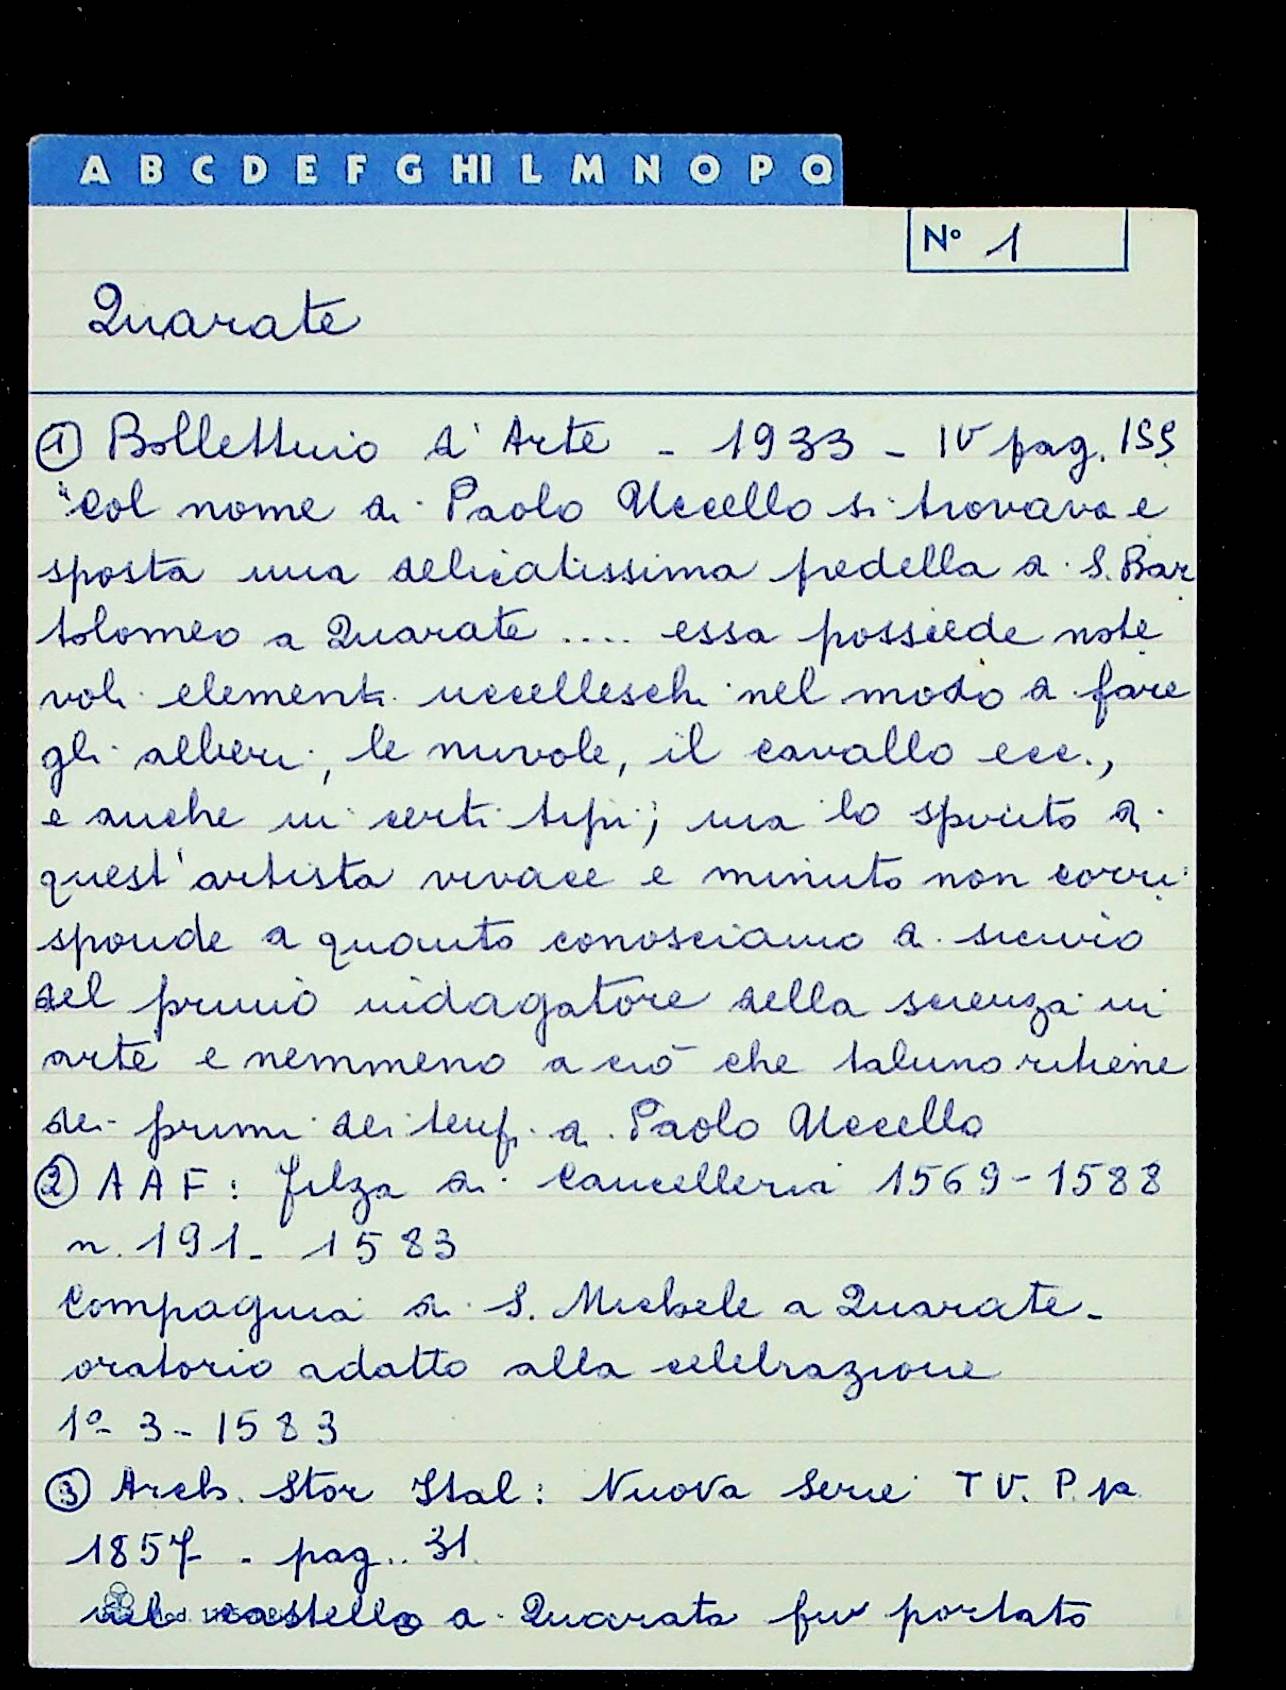 A B C D E F G HI L M N O P Q
N° 1
Quarate
① Bollettino d'Arte - 1933 - IV pag. 155
"Col nome di Paolo Uccello si trovava e
sposta una delicatissima predella di S. Bar
tolomeo a Quarate .... essa possiede note
voli elementi uccelleschi nel modo di fare
gli alberi, le nuvole, il cavallo ecc.,
e anche in certi tipi; ma lo spirito di
quest'artista vivace e minuto non corri
sponde a quanto conosciamo di sicuro
del primo indagatore della scienza in
arte e nemmeno a ciò che taluno ritiene
dei primi dei temp. di Paolo Uccello
② AAF: Filza di Cancelleria 1569-1588
n. 191- 1583
Compagnia di S. Michele a Quarate-
oratorio adatto alla celebrazione
1°- 3- 1583
③ Arch. Stor Ital: Nuova Serie T V. P.
1857 - pag.. 31
nel castello di Quarata fu portato